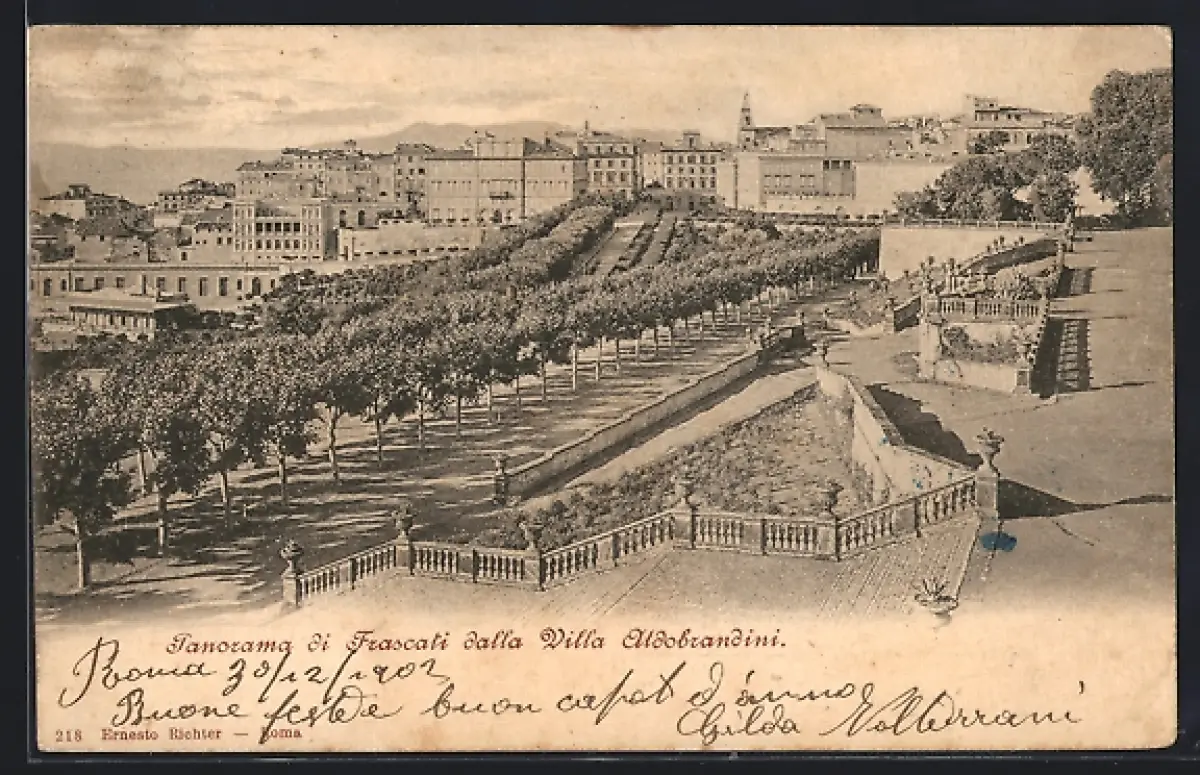 Panorama di Frascati dalla Villa Aldobrandini.
Roma 30/12/1902
Buone feste buon capo d'anno
Gilda Volterrani
218 Ernesto Richter — Roma